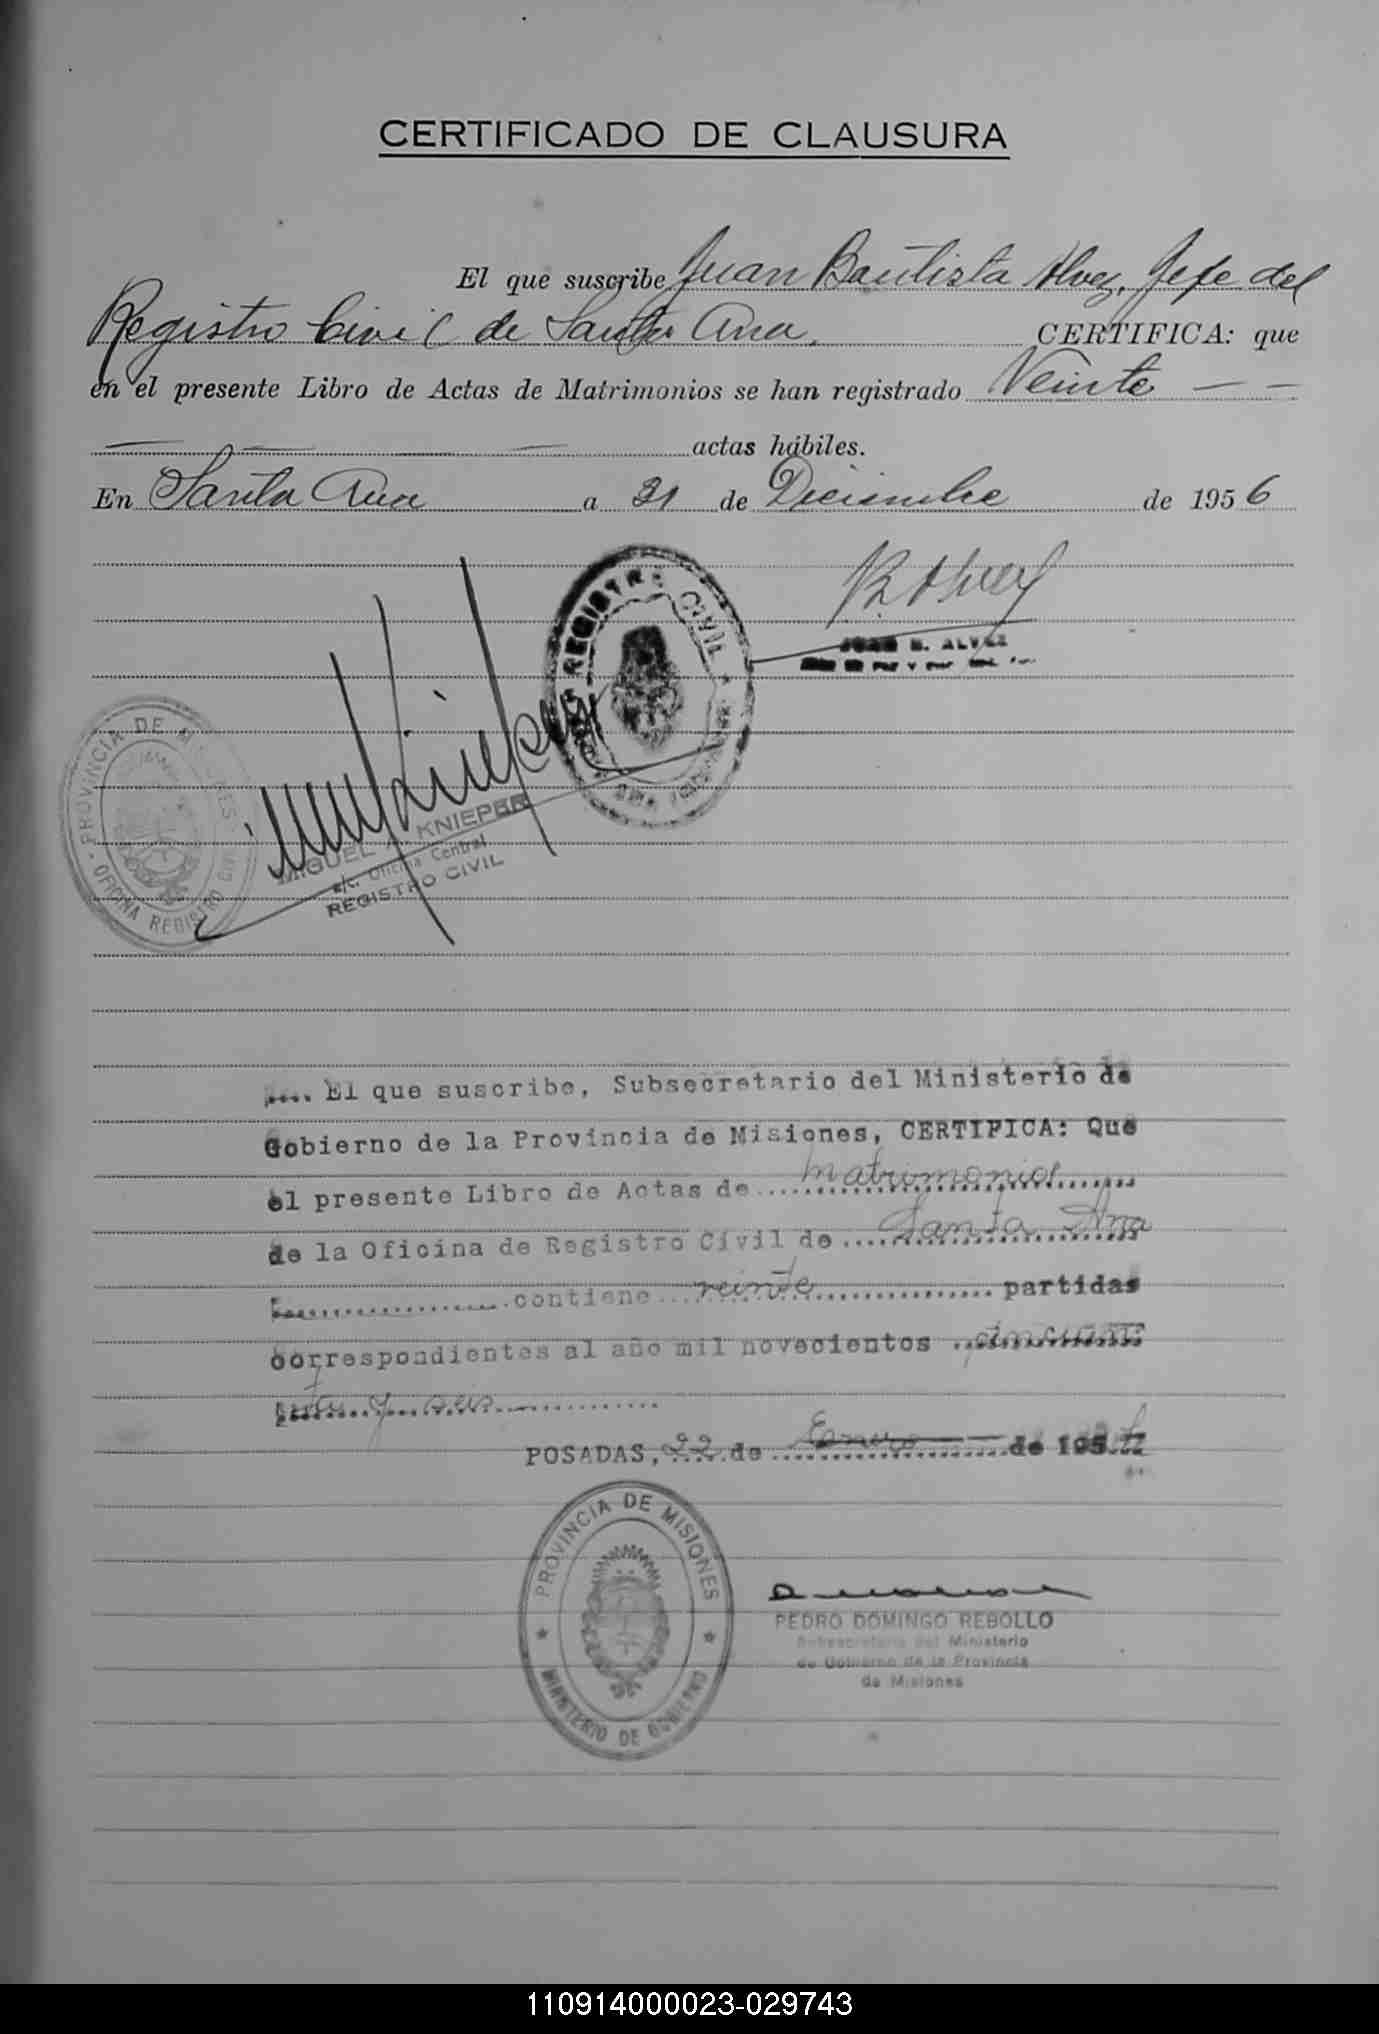 CERTIFICADO DE CLAUSURA
El que suscribe Juan Bautista Alvez, Jefe del
Registro Civil de Santa Ana. CERTIFICA: que
en el presente Libro de Actas de Matrimonios se han registrado Veinte — —
— — — — actas hábiles.
En Santa Ana a 31 de Diciembre de 1956
REGISTRO CIVIL
JUAN B. ALVEZ
PROVINCIA DE MISIONES
OFICINA REGISTRO CIVIL
MIGUEL A. KNIEPER
a/c. Oficina Central
REGISTRO CIVIL
.... El que suscribe, Subsecretario del Ministerio de
Gobierno de la Provincia de Misiones, CERTIFICA: Que
el presente Libro de Actas de matrimonios
de la Oficina de Registro Civil de Santa Ana
contiene veinte partidas
correspondientes al año mil novecientos
y seis
POSADAS, 22 de Enero — de 1957
PROVINCIA DE MISIONES
MINISTERIO DE GOBIERNO
PEDRO DOMINGO REBOLLO
Subsecretario del Ministerio
de Gobierno de la Provincia
de Misiones
110914000023-029743